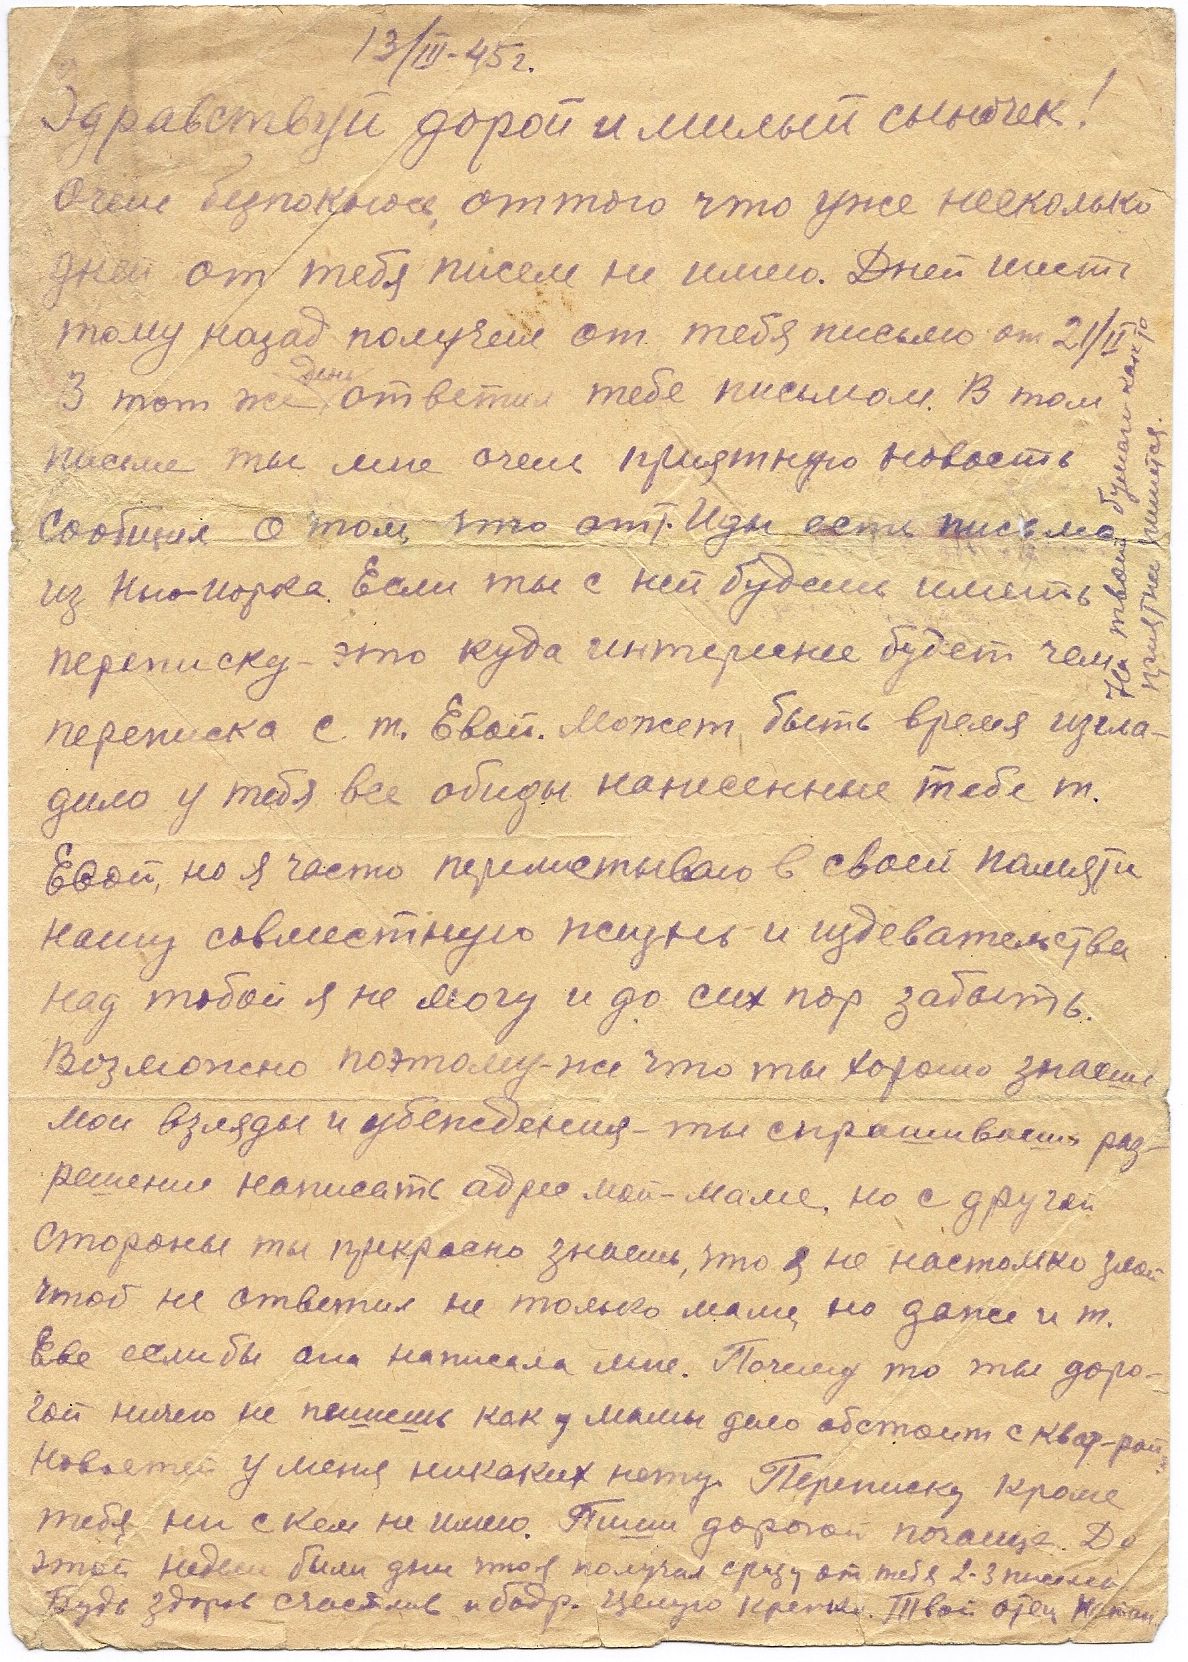 13/III-45г.
Здравствуй дорой и милый сыночек!
Очень безпокоюсь, оттого что уже несколько
дней от тебя писем не имею. Дней шесть
тому назад получил от тебя письмо от 21/II
В тот же день ответил тебе письмом. В том
письме ты мне очень приятную новость
сообщил о том, что от т. Иды есть письмо
из Нью-Иорка. Если ты с ней будешь иметь
переписку - это куда интереснее будет чем
переписка с т. Евой. Может быть время изгла-
дило у тебя все обиды нанесенные тебе т.
Евой, но я часто перелистываю в своей памяти
нашу совместную жизнь и издевательства
над тобой я не могу и до сих пор забыть.
Возможно поэтому-же что ты хорошо знаешь
мои взгляды и убеждения - ты спрашиваешь раз-
решение написать адрес мой - маме, но с другой
стороны ты прекрасно знаешь, что я не настолько злой
чтоб не ответил не только маме, но даже и т.
Еве еслибы она написала мне. Почему то ты доро-
гой ничего не пишешь как у мамы дело обстоит с квар-рой
Новостей у меня никаких нету. Переписку кроме
тебя ни с кем не имею. Пиши дорогой почаще. До
этой недели были дни что я получал сразу от тебя 2-3 письма
Будь здоров счастлив и бодр. Целую крепко. Твой отец
На твоей бумаге как то
приятнее пишется.